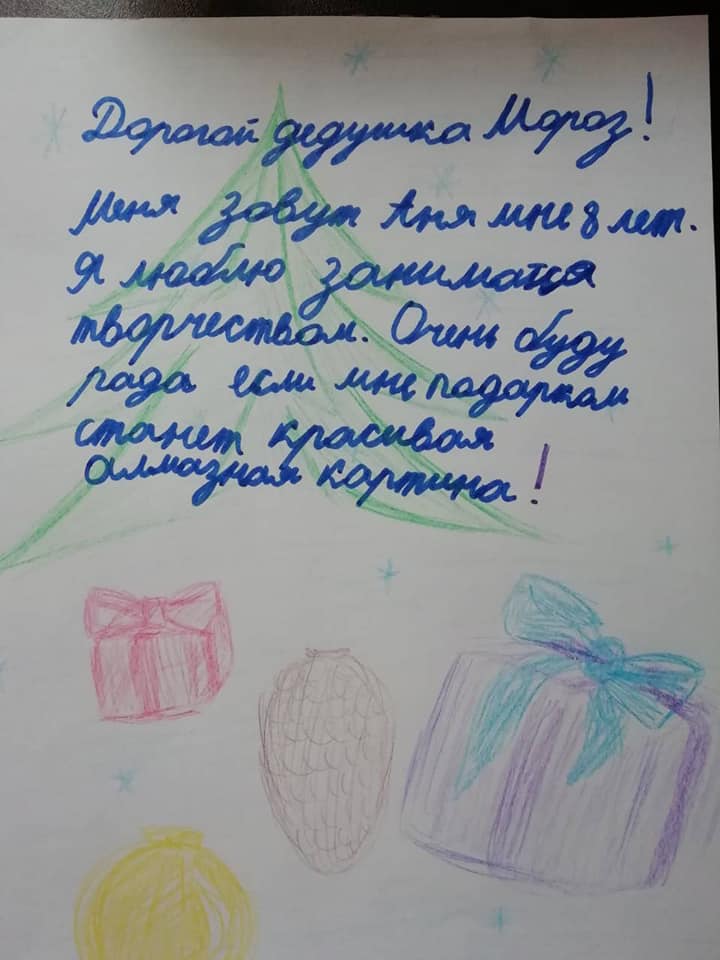 Дорогой дедушка Мороз!
Меня зовут Аня мне 8 лет.
Я люблю заниматся
творчеством. Очень буду
рада если мне подарком
станет красивая
алмазная картина!